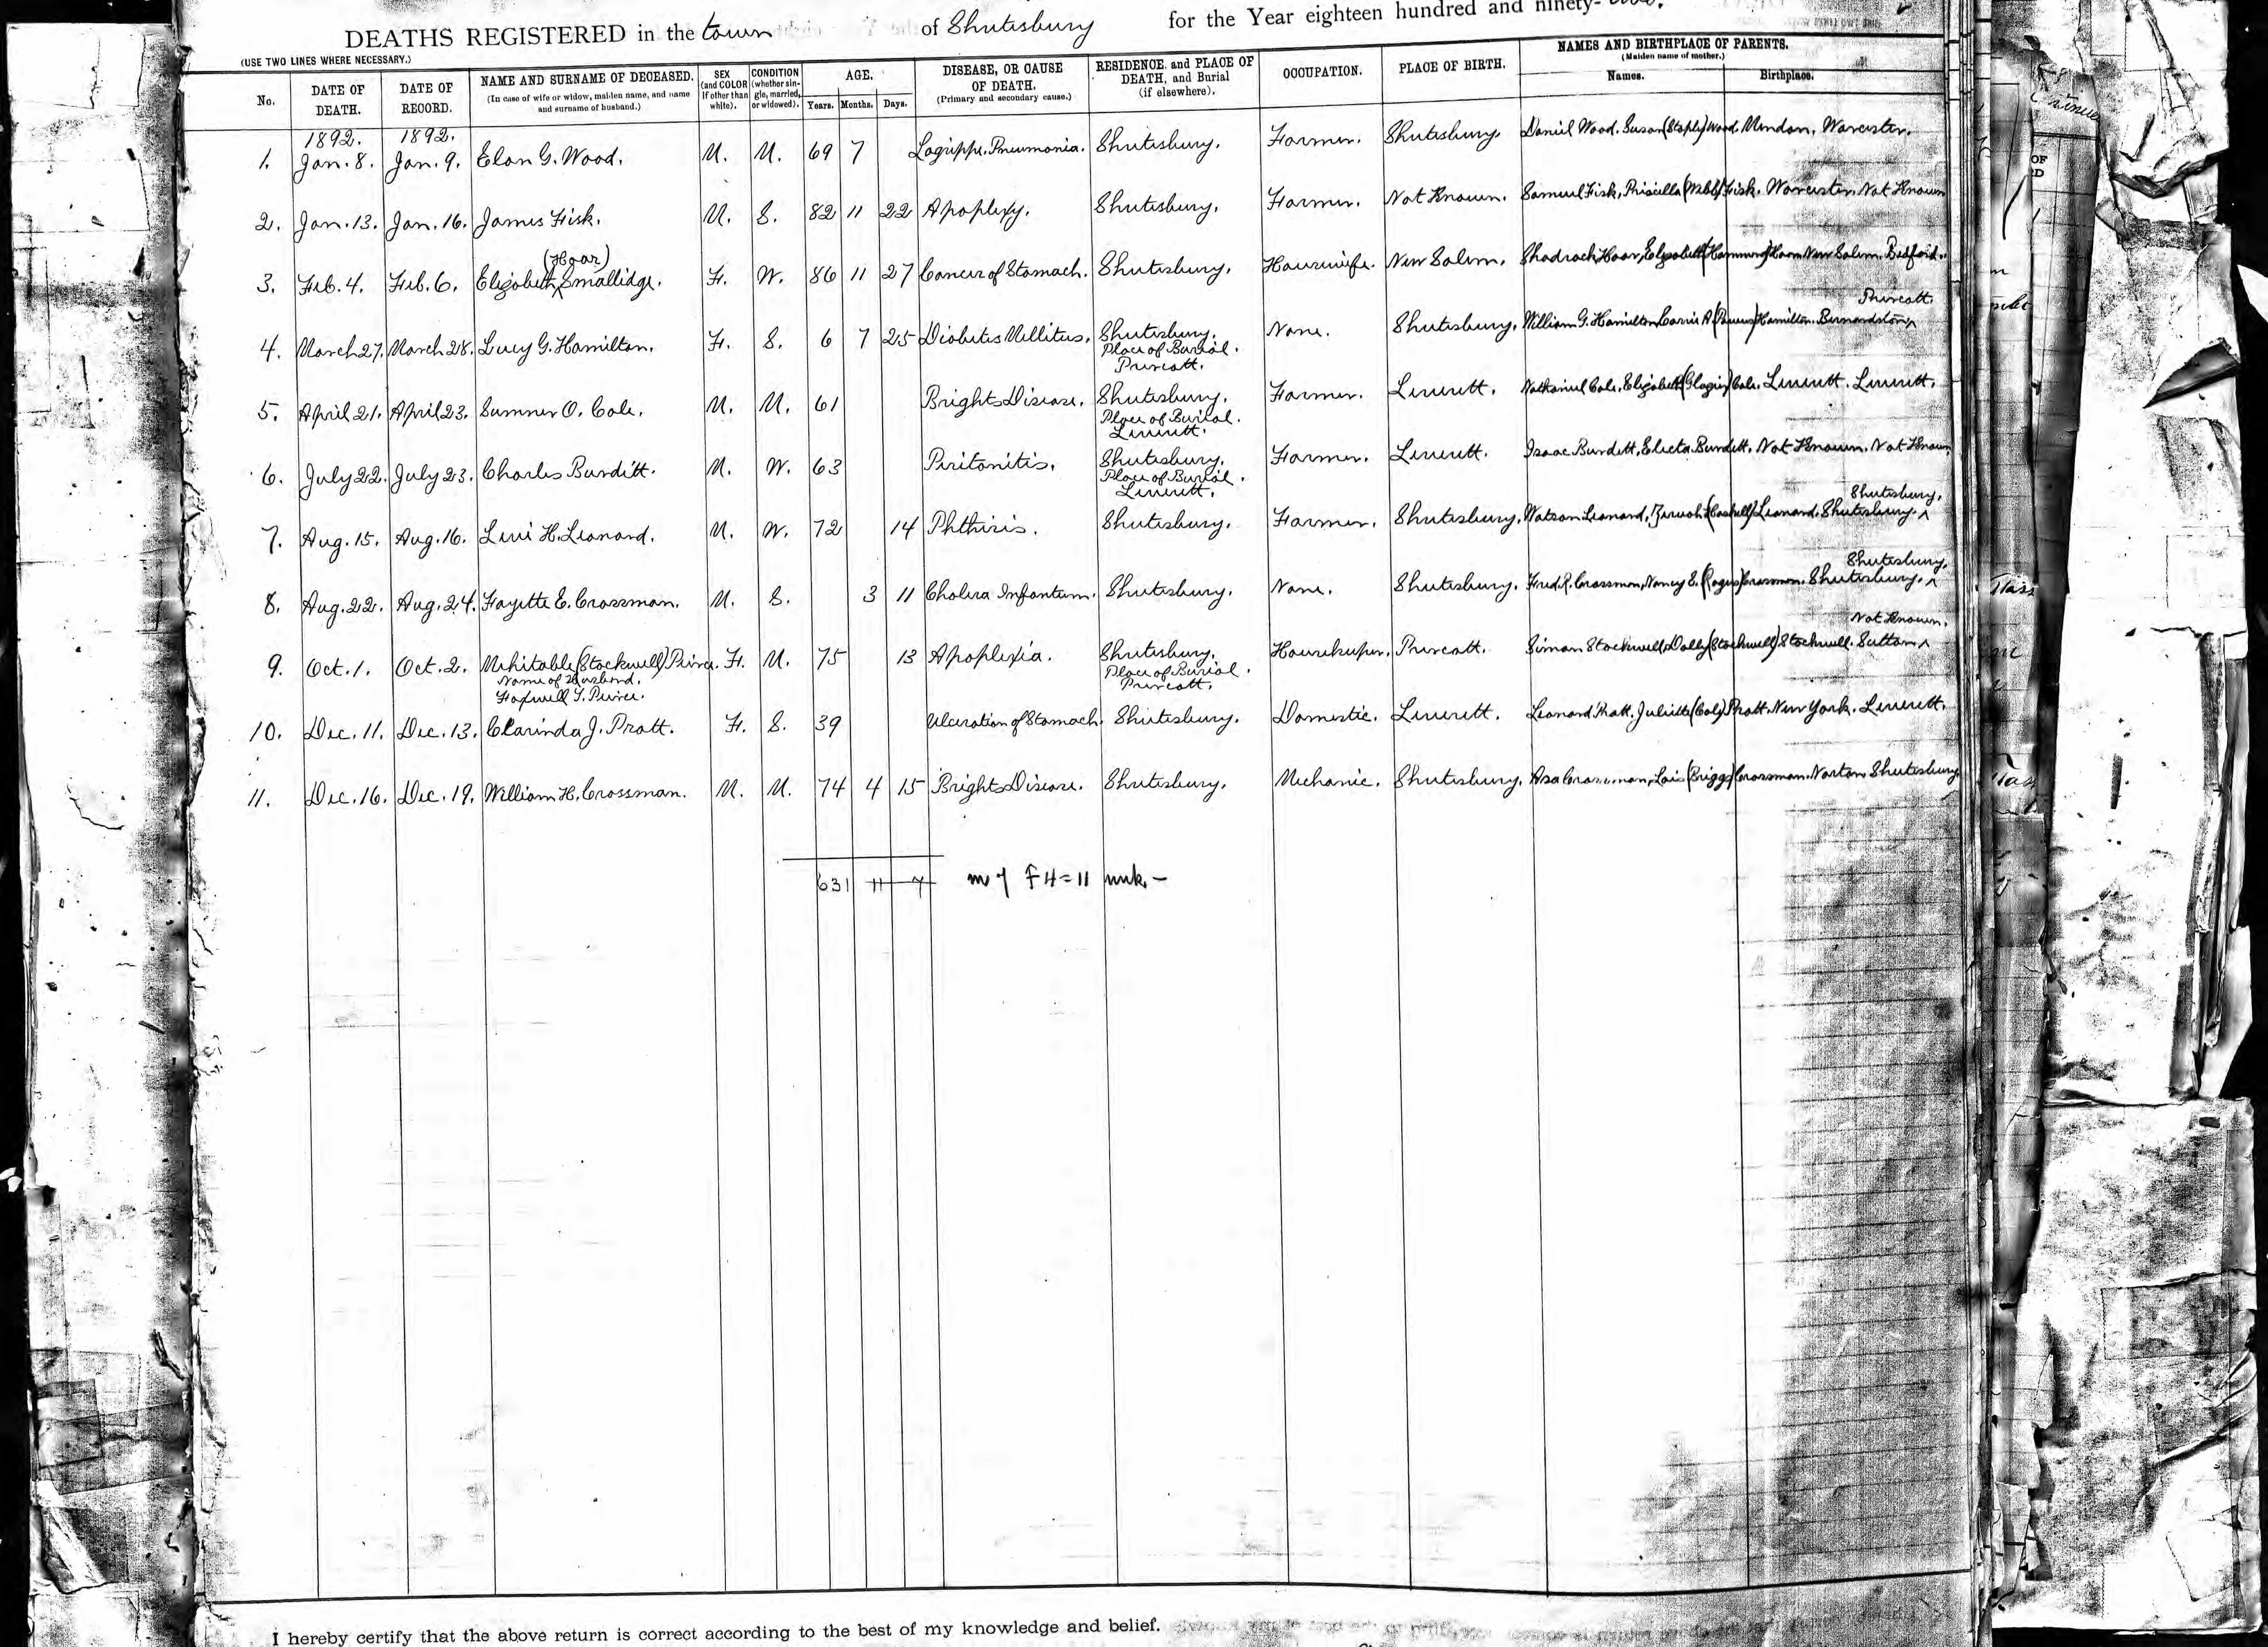 DEATHS REGISTERED in the town of Shutesbury for the Year eighteen hundred and ninety-two.
(USE TWO LINES WHERE NECESSARY.)
No. DATE OF DEATH. DATE OF RECORD. NAME AND SURNAME OF DECEASED. (In case of wife or widow, maiden name, and name and surname of husband.) SEX (and COLOR if other than white). CONDITION (whether single, married, or widowed). AGE. Years. Months. Days. DISEASE, OR CAUSE OF DEATH. (Primary and secondary cause.) RESIDENCE, and PLACE OF DEATH, and Burial (if elsewhere). OCCUPATION. PLACE OF BIRTH. NAMES AND BIRTHPLACE OF PARENTS. (Maiden name of mother.) Names. Birthplace.
1892. 1892.
1. Jan. 8. Jan. 9. Elon G. Wood. M. M. 69 7 Lagrippe. Pneumonia. Shutesbury. Farmer. Shutesbury. Daniel Wood. Susan (Staply) Wood. Mendon. Worcester.
2. Jan. 13. Jan. 16. James Fisk. M. S. 82 11 22 Apoplexy. Shutesbury. Farmer. Not Known. Samuel Fisk, Priscilla (Webb) Fisk. Worcester, Not Known
(Hoar)
3. Feb. 4. Feb. 6. Elizabeth ^ Smallidge. F. W. 86 11 27 Cancer of Stomach. Shutesbury. Housewife. New Salem. Shadrach Hoar, Elizabeth (Hammond) Hoar. New Salem. Bedford.
Prescott.
4. March 27. March 28. Lucy G. Hamilton. F. S. 6 7 25 Diabetes Mellitus. Shutesbury. None. Shutesbury. William G. Hamilton, Carrie A. (Powers) Hamilton. Bernardston ^
Place of Burial.
Prescott.
5. April 21. April 23. Sumner O. Cole. M. M. 61 Brights Disease. Shutesbury. Farmer. Leverett. Nathaniel Cole. Elizabeth Cole. Leverett. Leverett.
Place of Burial.
Leverett.
6. July 22. July 23. Charles Burditt. M. W. 63 Peritonitis. Shutesbury. Farmer. Leverett. Isaac Burditt, Electa Burditt. Not Known. Not Known
Place of Burial.
Leverett.
Shutesbury.
7. Aug. 15. Aug. 16. Levi H. Leonard. M. W. 72 14 Phthisis. Shutesbury. Farmer. Shutesbury. Watson Leonard, (Haskell) Leonard. Shutesbury. ^
Shutesbury.
8. Aug. 22. Aug. 24. Fayette E. Crossman. M. S. 3 11 Cholera Infantum. Shutesbury. None. Shutesbury. Fred R. Crossman, Nancy E. Crossman. Shutesbury. ^
Not Known.
9. Oct. 1. Oct. 2. Mehitable (Stockwell) Peirce. F. M. 75 13 Apoplexia. Shutesbury. Housekeeper. Prescott. Simon Stockwell, Dolly (Stockwell) Stockwell. Sutton ^
Name of Husband. Place of Burial.
Foxwell T. Peirce. Prescott.
10. Dec. 11. Dec. 13. Clarinda J. Pratt. F. S. 39 Ulceration of Stomach. Shutesbury. Domestic. Leverett. Leonard Pratt. Juliette (Cole) Pratt. New York. Leverett.
11. Dec. 16. Dec. 19. William H. Crossman. M. M. 74 4 15 Brights Disease. Shutesbury. Mechanic. Shutesbury. Asa Crossman, Lois (Briggs) Crossman. Norton Shutesbury
631 11 7 m 7 F 4 = 11 unk. -
I hereby certify that the above return is correct according to the best of my knowledge and belief.